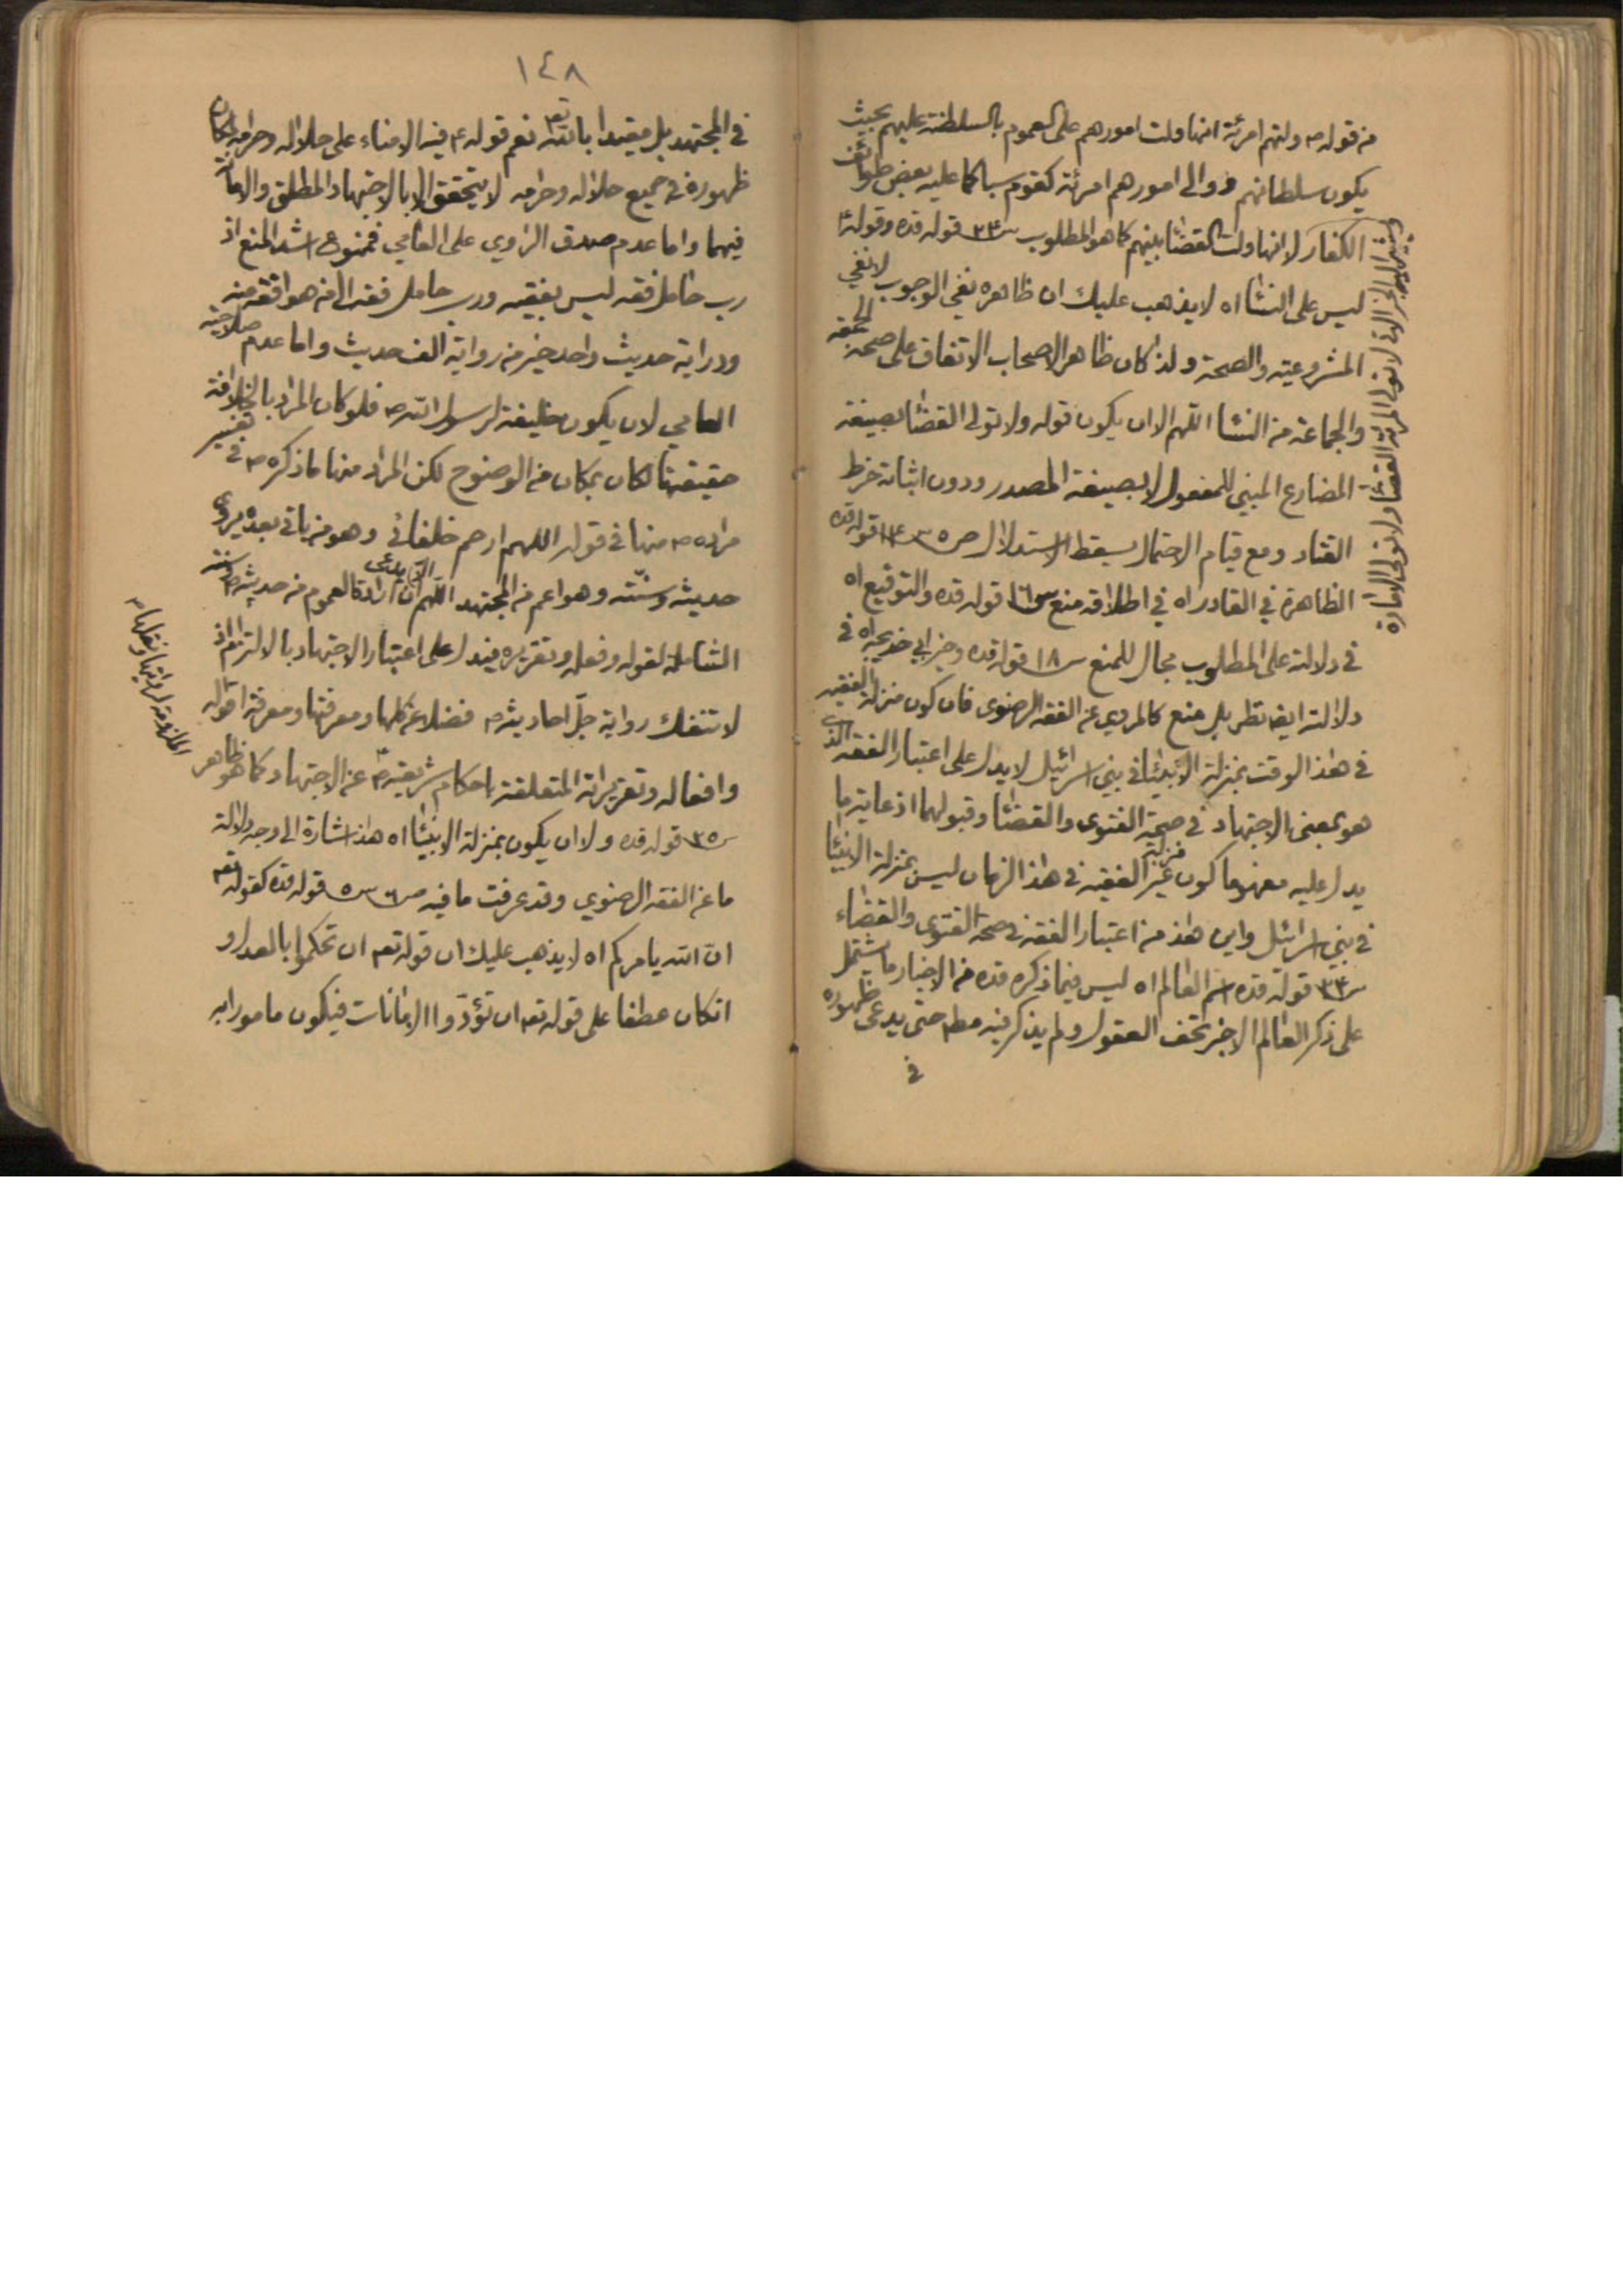 من قوله ص ولتهم امرئة انها ولت امورهم على العموم بالسلطنة عليهم بحيث
يكون سلطانهم ووالى امورهم امرئة كقوم سبا كما عليه بعض طوائف
الكفار لا انها ولت القضا بينهم كما هو المطلوب س٣٣ قوله قده وقوله ع
ليس على النسا اه لا يذهب عليك ان ظاهره نفي الوجوب لا نفي
المشروعية والصحة ولذا كان ظاهر الاصحاب الاتفاق على صحة الجمعة
والجماعة من النسا اللهم الا ان يكون قوله ولا تولى القضا بصيغة
المضارع المبني للمفعول لا بصيغة المصدر ودون اثباته خرط
القتاد ومع قيام الاحتمال يسقط الاستدلال ص٥ س١٣ قوله قده
الظاهرة في القادر اه في اطلاقه منع س١٦ قوله قده والتوقيع اه
في دلالته على المطلوب مجال للمنع س١٨ قوله قده وخبر ابي خديجة اه في
دلالته ايضا نظر بل منع كالمروي عن الفقه الرضوى فان كون منزلة الفقيه
في هذا الوقت بمنزلة الانبيا في بني اسرائيل لا يدل على اعتبار الفقه الذي
هو بمعنى الاجتهاد في صحة الفتوى والقضا وقبولهما اذ غاية ما
يدل عليه مفهوما كون منزلة غير الفقيه في هذا الزمان ليس بمنزلة الانبيا
في بني اسرائيل واين هذا من اعتبار الفقه في صحة الفتوى والقضاء
س٣٣ قوله قده اسم العالم اه ليس فيما ذكره قده من الاخبار ما يشتمل
على ذكر العالم الا خبر تحف العقول ولم يذكر فيه مطم حتى يدعى ظهوره
في
الخبر الاتي لا تولى المرئة القضا ولا تولى الامارة
١٤٨
في المجتهد بل مقيدا بالله تعم نعم قوله ع فيه الامناء على حلاله وحرامه لمكان
ظهوره في جميع حلاله وحرامه لا يتحقق الا بالاجتهاد المطلق والامانة
فيهما واما عدم صدق الراوي على العامي فممنوع اشد المنع اذ
رب حامل فقه ليس بفقيه ورب حامل فقه الى من هو افقه منه
ودراية حديث واحد خير من رواية الف حديث واما عدم صلاحية
العامي لان يكون خليفة لرسول الله ص فلو كان المراد بالخلافة
حقيقتها لكان بمكان من الوضوح لكن المراد منها ما ذكره ص في تفسير
مراده ص منها في قوله اللهم ارحم خلفائي وهو من ياتي بعده يروي
حديثه وسنته وهو اعم من المجتهد اللهم الا ان يدعى ارادة العموم من حديثه ص وسنته
الشاملة لقوله وفعله وتقريره فيدل على اعتبار الاجتهاد بالالتزام اذ
لا تنفك رواية جل احاديثه ص فضلا عن كلها ومعرفتها ومعرفة اقواله
وافعاله وتقريراته المتعلقة باحكام شريعته ص عن الاجتهاد كما هو ظاهر
س٣٥ قوله قده ولا ان يكون بمنزلة الانبيا اه هذا اشارة الى وجه دلالة
ما عن الفقه الرضوي وقد عرفت ما فيه ص٦ س٥ قوله قده كقوله تعم
ان الله يامركم اه لا يذهب عليك ان قوله تعم ان تحكموا بالعدل و
انكان عطفا على قوله تعم ان تؤدوا الامانات فيكون مامورا به